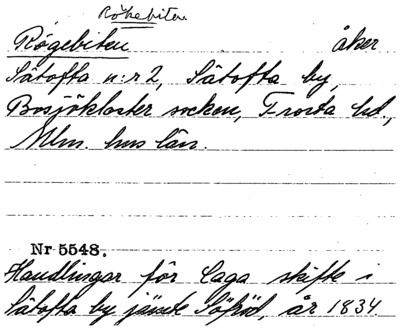 Rökebiten
Rögebiten åker
Såtofta n:r 2, Såtofta by,
Bosjökloster socken, Frosta hd.,
Mlm. hus län.
Nr 5548.
Handlingar för Laga skifte i
Såtofta by jämte Söröd, år 1834